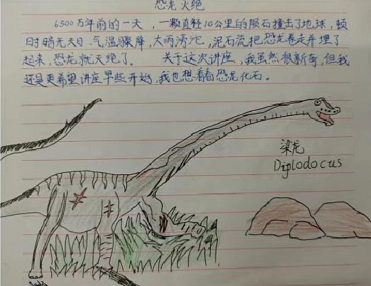 恐龙灭绝
6500万年前的一天，一颗直径10公里的陨石撞击了地球，顿
时暗无天日，气温骤降，大雨滂沱，泥石流把恐龙卷走并埋了
起来，恐龙就灭绝了。 关于这次讲座，我虽然很新奇，但我
还是更希望讲座早些开始，我也想看看恐龙化石。
梁龙
Diplodocus